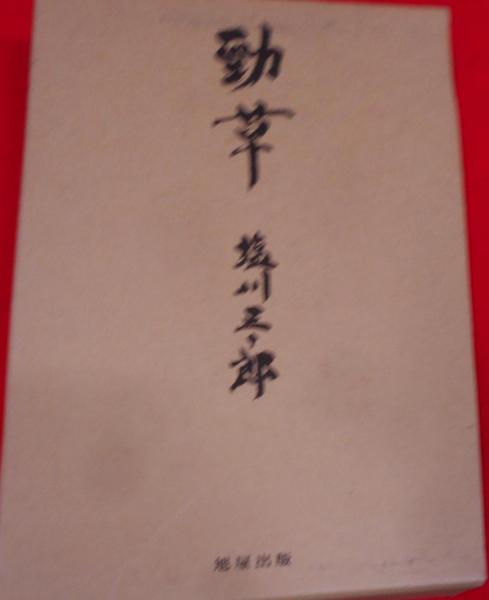 勁草
塩川三郎
旭屋出版